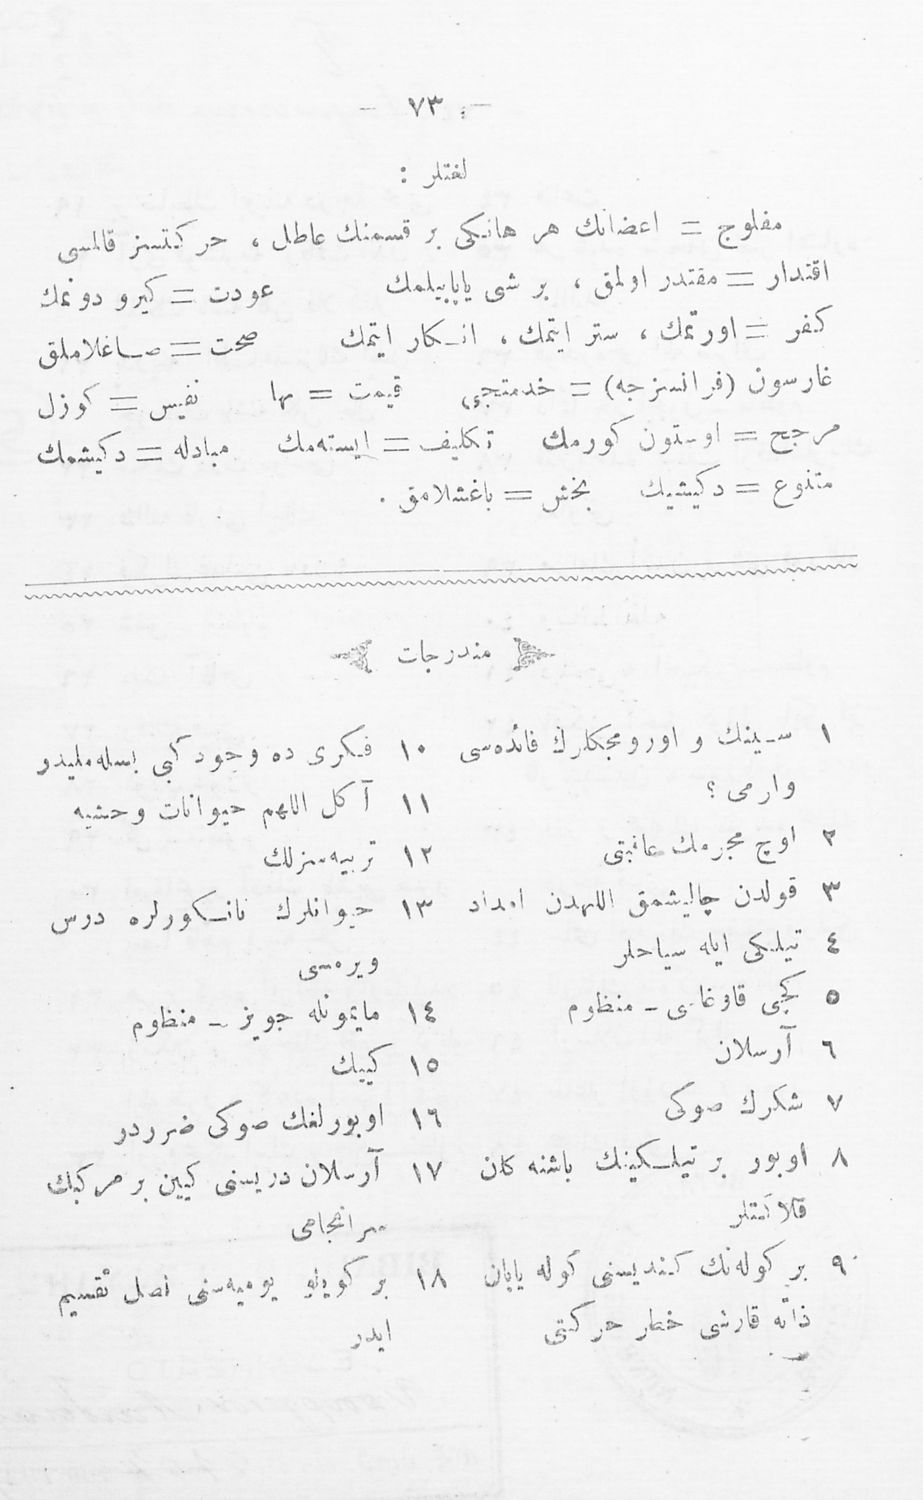 — ٧٣ —
لغتلر :
مفلوج = اعضانك هر هانكى بر قسمنك عاطل ، حركتسز قالمسى
اقتدار = مقتدر اولمق ، بر شى ياپابيلمك عودت = كيرو دونمك
كفر = اورتمك ، ستر ايتمك ، انكار ايتمك صحت = صاغلاملق
غارسون (فرانسزجه) = خدمتجى قيمت = بها نفيس = كوزل
مرجح = اوستون كورمك تكليف = ايستهمك مبادله = دكيشمك
متنوع = دكيشيك بخش = باغشلامق .
مندرجات
١ سينك و اورومجكلرك فائدهسى
وارمى ؟
٢ اوچ مجرمك عاقبتى
٣ قولدن چاليشمق اللهدن امداد
٤ تيلكى ايله سياحلر
٥ كجى قاوغاسى ـ منظوم
٦ آرسلان
٧ شكرك صوكى
٨ اوبور بر تيلكينك باشنه كلن
فلاكتلر
٩ بر كولهنك كنديسنى كوله ياپان
ذاته قارشى خطار حركتى
١٠ فكرى ده وجود كبى بسلهمليدر
١١ آكل اللهم حيوانات وحشيه
١٢ تربيهسزلك
١٣ حيوانلرك نانكورلره درس
ويرمسى
١٤ مايمونله جويز ـ منظوم
١٥ كييك
١٦ اوبورلغك صوكى ضرردر
١٧ آرسلان دريسنى كيين بر مركبك
سرانجامى
١٨ بر كويلو يوميهسنى نصل تقسيم
ايدر